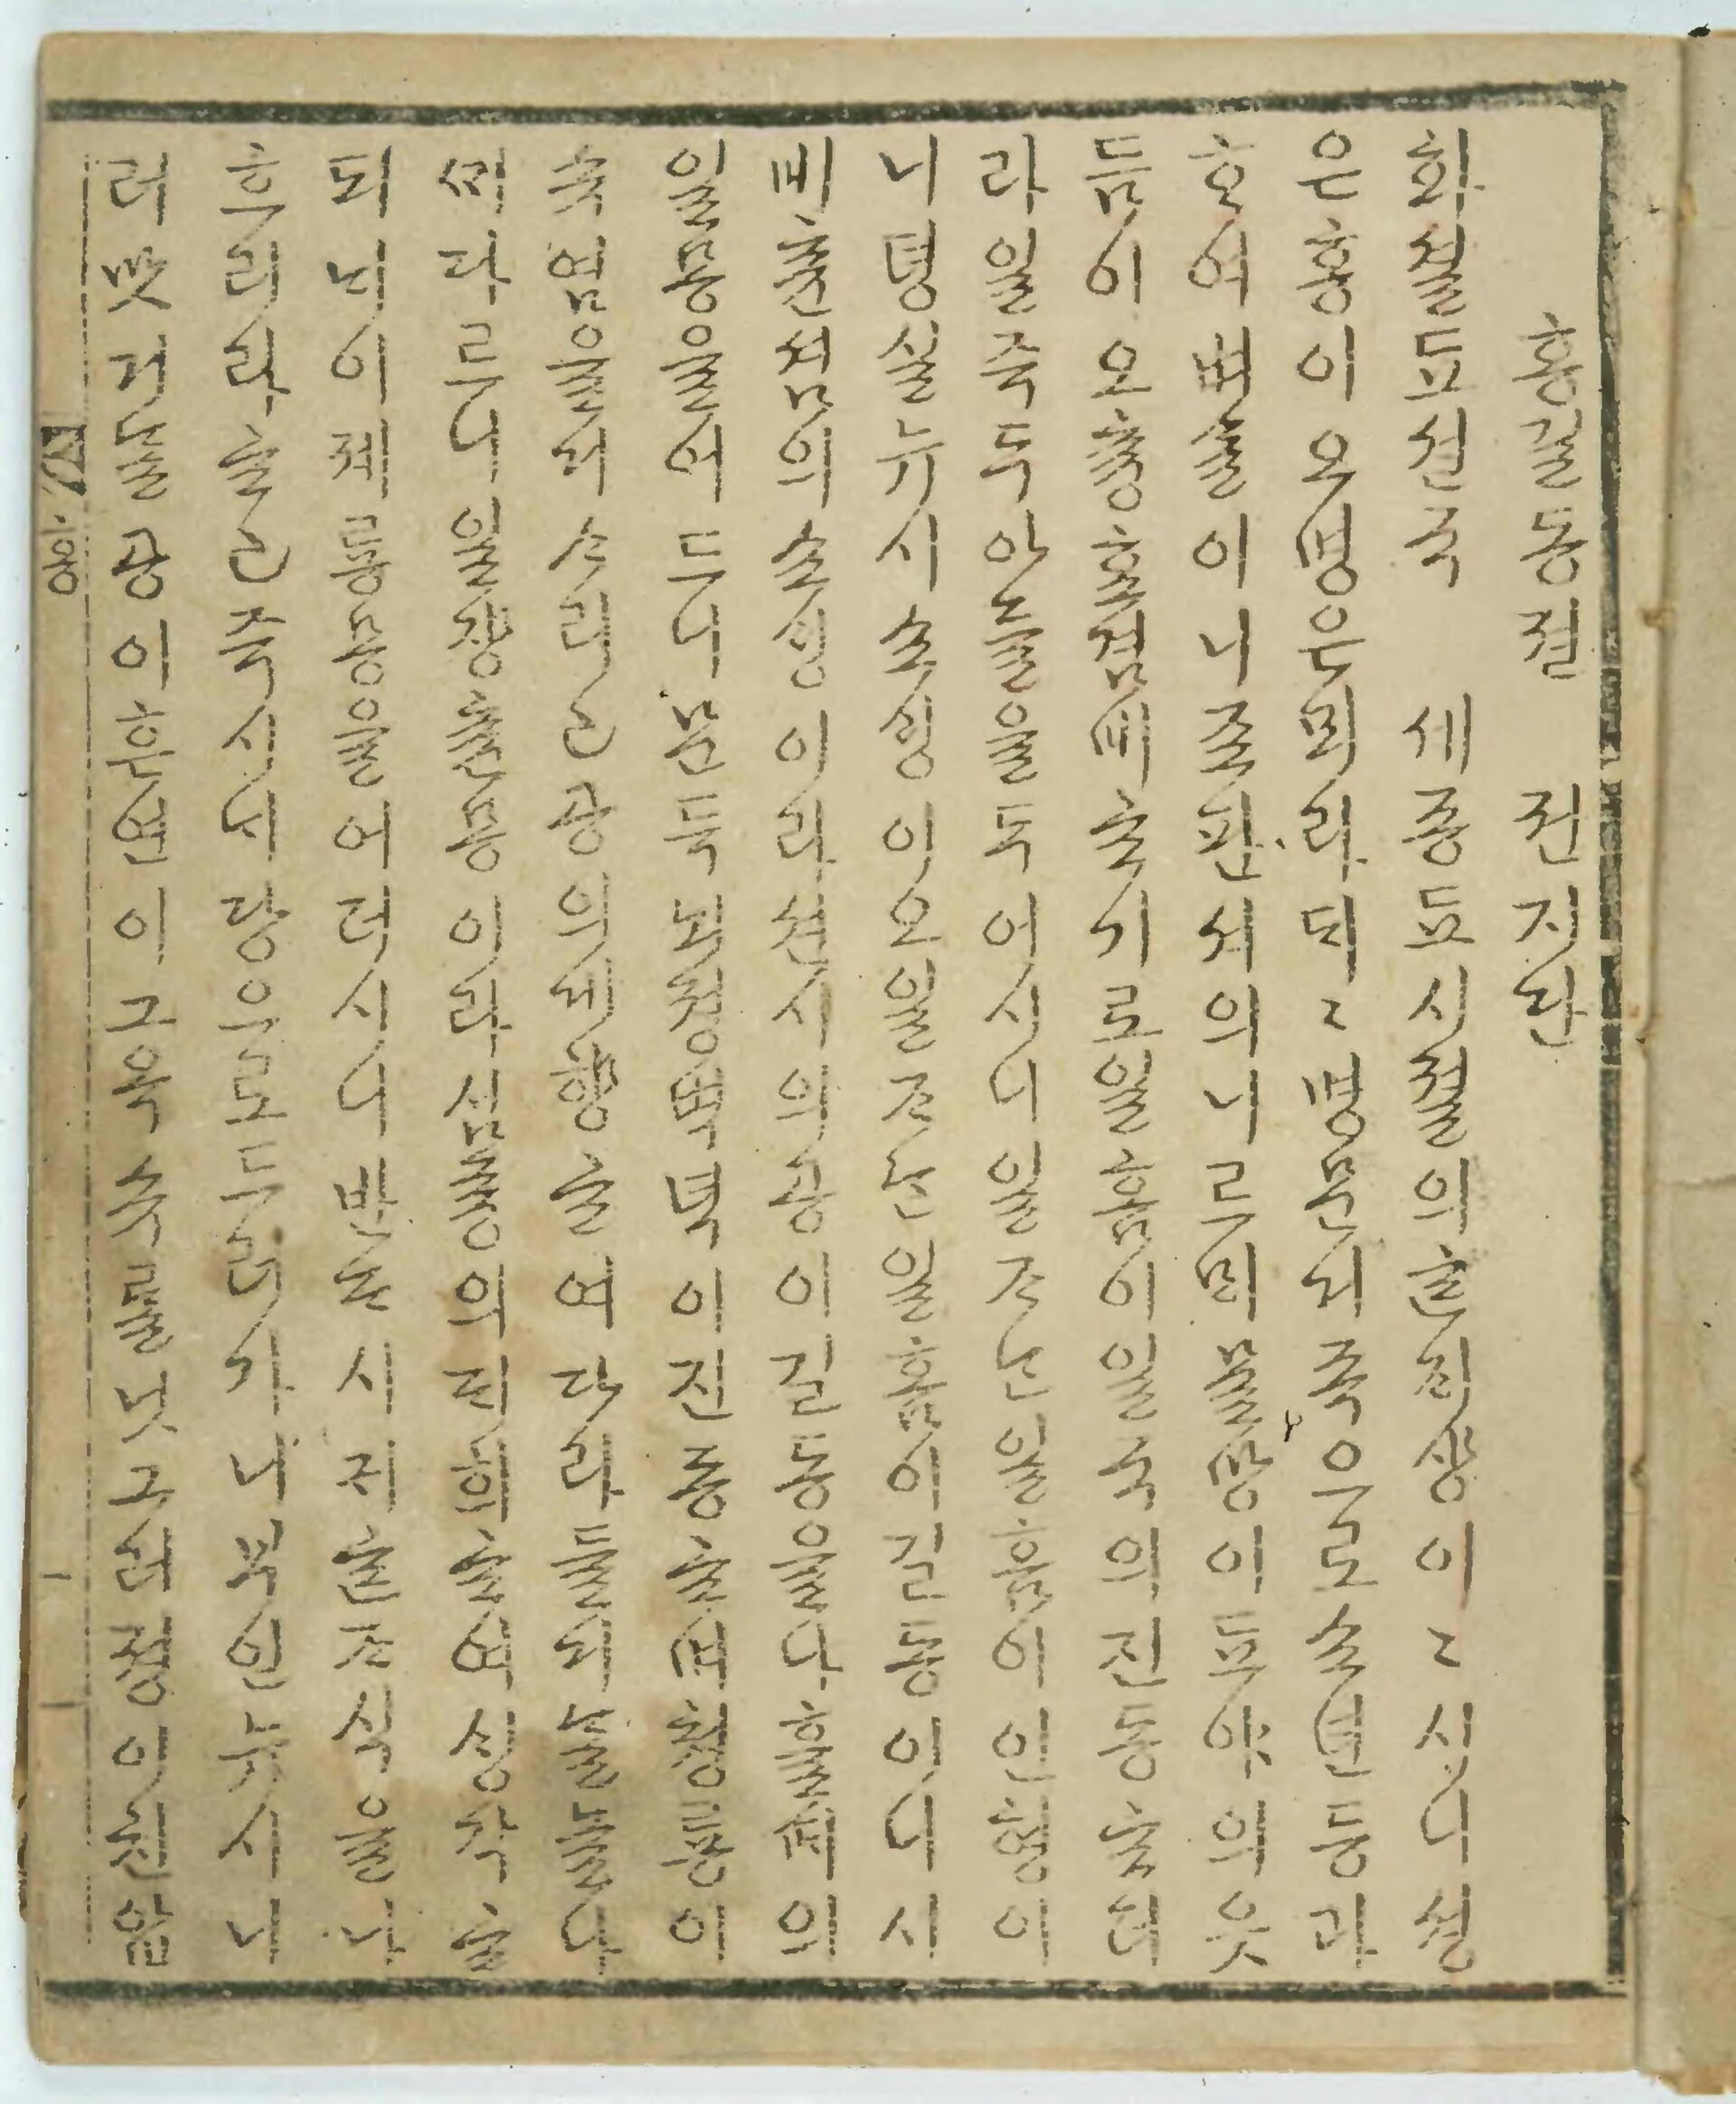 홍길동젼 권지단
화셜됴션국 셰종됴시졀의ᄒᆞᆫᄌᆡ상이〻시니셩
은홍이오명은뫼라ᄃᆡ〻명문거족으로쇼년등과
ᄒᆞ여벼슬이니조판셔의니르ᄆᆡ물망이됴야의읏
듬이오츙효겸비ᄒᆞ기로일홈이일국의진동ᄒᆞ더
라일즉두아들을두어시니일ᄌᆞᄂᆞᆫ일홈이인형이
니뎡실뉴시쇼ᄉᆡᆼ이오일ᄌᆞᄂᆞᆫ일홈이길동이니시
비츈셤의쇼ᄉᆡᆼ이라션시의공이길동을나흘ᄯᆡ의
일몽을어드니문득뇌졍벽녁이진동ᄒᆞ며쳥룡이
슈염을거ᄉᆞ리고공의게향ᄒᆞ여다라들거ᄂᆞᆯ놀나
ᄭᆡ다르니일쟝츈몽이라심즁의ᄃᆡ희ᄒᆞ여ᄉᆡᆼ각ᄒᆞ
되ᄂᆡ이졔룡몽을어더시니반ᄃᆞ시귀ᄒᆞᆫᄌᆞ식을나
ᄒᆞ리라ᄒᆞ고즉시ᄂᆡ당으로드러가니부인뉴시니
러맛거ᄂᆞᆯ공이흔연이그옥슈를닛그러졍이친압
홍